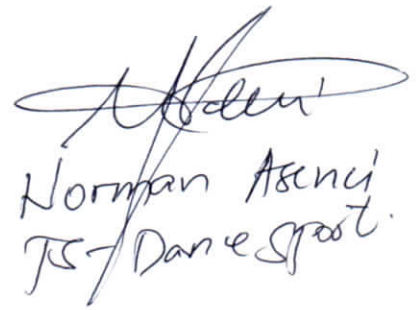 Norman Asenci
TS-Dance Sport.